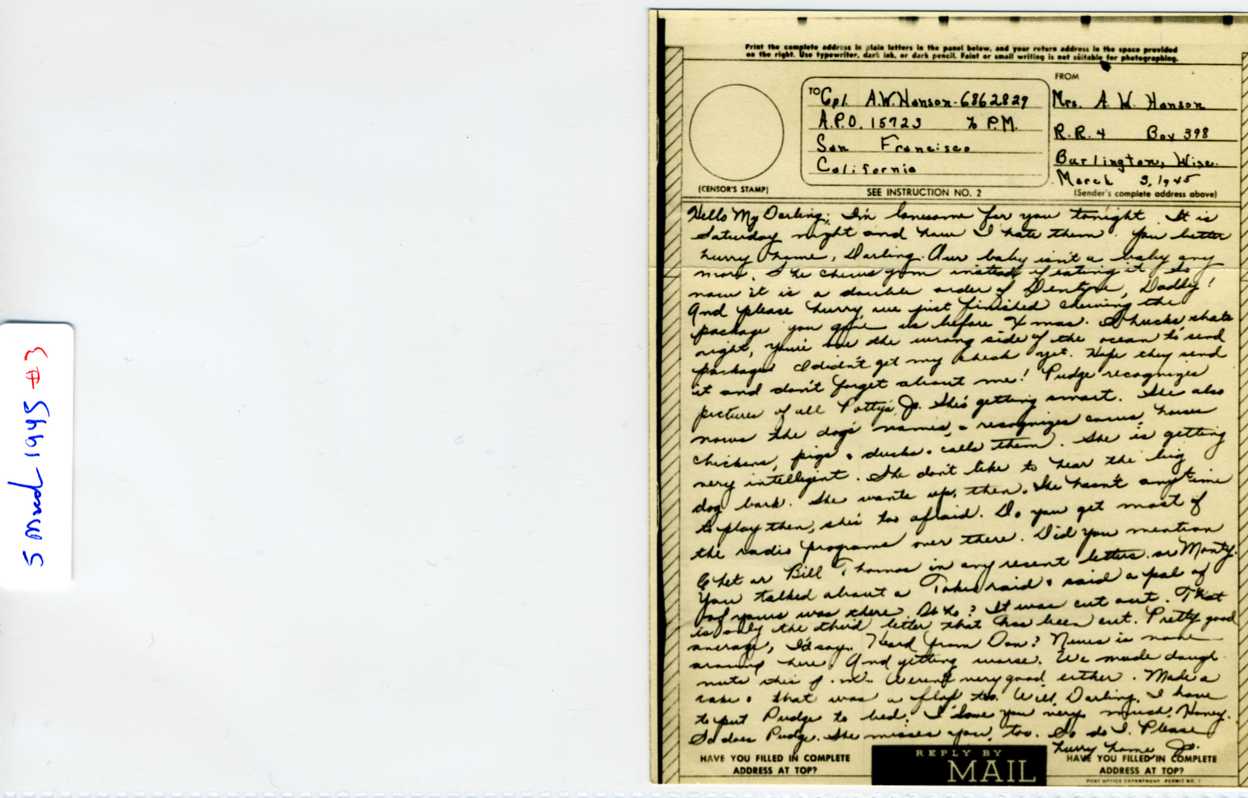 5 March 1945 #3
Print the complete address in plain letters in the panel below, and your return address in the space provided
on the right. Use typewriter, dark ink, or dark pencil. Faint or small writing is not suitable for photographing.
TO
Cpl. A.W. Hanson - 6862829
A.P.O. 15723 % P.M.
San Francisco
California
FROM
Mrs. A. W. Hanson
R.R. 4 Box 398
Burlington, Wisc.
March 3, 1945
(CENSOR'S STAMP)
SEE INSTRUCTION NO. 2
(Sender's complete address above)
Hello My Darling; I'm lonesome for you tonight. It is
Saturday night and how I hate them. You better
hurry home, Darling. Our baby isn't a baby any
more. She chews gum instead of eating it so
now it is a double order of Dentyne, Daddy!
And please hurry, we just finished chewing the
package you gave us before X mas. Shucks thats
right, you're on the wrong side of the ocean to send
packages I didn't get my check yet. Hope they send
it and don't forget about me! Pudge recognizes
pictures of all Patty's Jo. She's getting smart. She also
nows the dogs names, & recognizes cows, horses
chickens, pigs & ducks & calls them. She is getting
very intelligent. She don't like to hear the big
dog bark. She wants up, then. She hasn't any time
to play then, she's too afraid. Do you get most of
the radio programs over there. Did you mention
Chet or Bill Thomas in any resent letters or Monty.
You talked about a raid & said a pal of
of yours was there. Who? It was cut out. That
is only the third letter that has been cut. Pretty good
average, I'd say. Heard from Don? News is none
around here. And getting worse. We made dough
nuts this Weren't very good either. Made a
cake & that was a flop too. Well, Darling, I have
to put Pudge to bed. I love you very much, Honey.
So does Pudge. She misses you, too. So do I. Please
hurry home Jo.
HAVE YOU FILLED IN COMPLETE
ADDRESS AT TOP?
REPLY BY
MAIL
HAVE YOU FILLED IN COMPLETE
ADDRESS AT TOP?
POST OFFICE DEPARTMENT PERMIT NO. 1